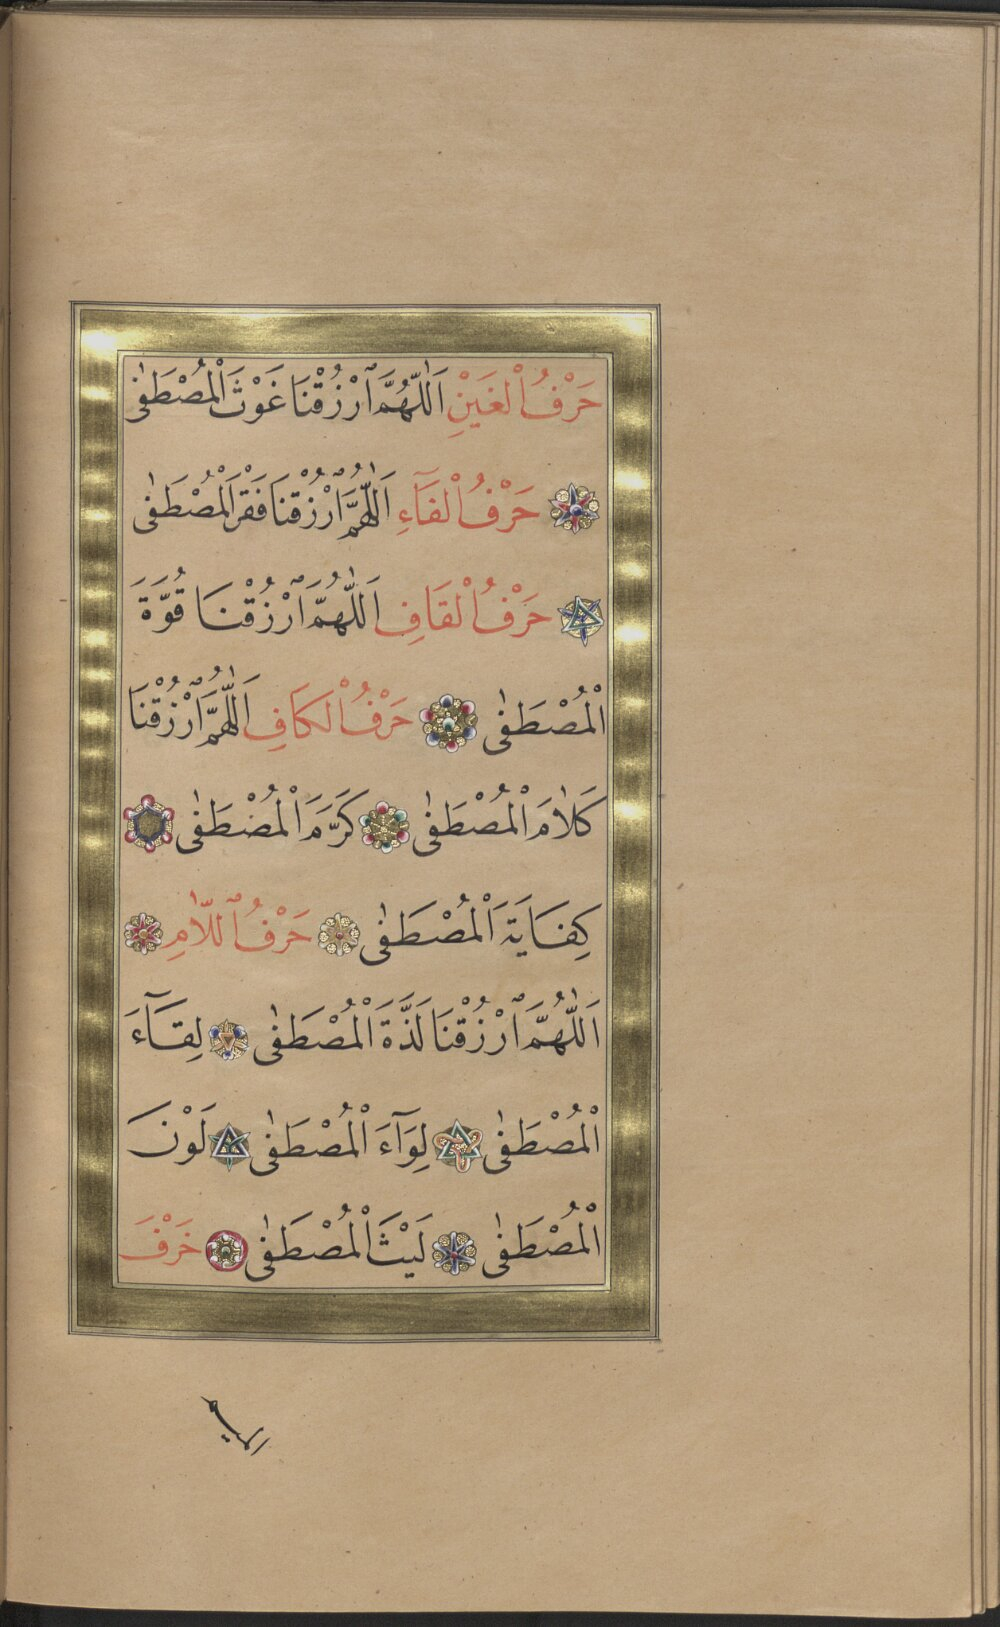 حَرْفُ الْغَيْنِ اَللّٰهُمَّ ارْزُقْنَا غَوْثَ الْمُصْطَفٰى
حَرْفُ الْفَآءِ اَللّٰهُمَّ ارْزُقْنَا فَقْرَ الْمُصْطَفٰى
حَرْفُ الْقَافِ اَللّٰهُمَّ ارْزُقْنَا قُوَّةَ
الْمُصْطَفٰى حَرْفُ الْكَافِ اَللّٰهُمَّ ارْزُقْنَا
كَلَامَ الْمُصْطَفٰى كَرَّمَ الْمُصْطَفٰى
كِفَايَةَ الْمُصْطَفٰى حَرْفُ اللَّامِ
اَللّٰهُمَّ ارْزُقْنَا لَذَّةَ الْمُصْطَفٰى لِقَآءَ
الْمُصْطَفٰى لِوَآءَ الْمُصْطَفٰى لَوْنَ
الْمُصْطَفٰى لَيْثَ الْمُصْطَفٰى حَرْفَ
الميم